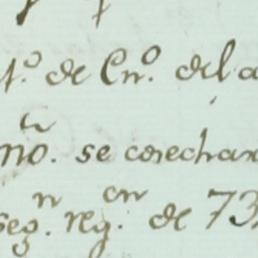 1.º de En.º del a
ño. se cosechar
seg.n reg.on de 73